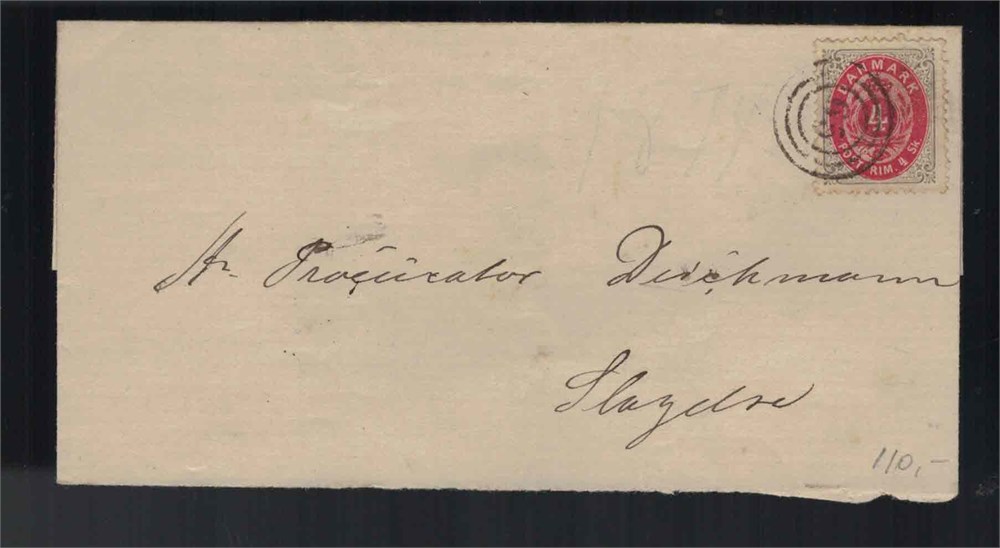 DANMARK
4
POST FRIM. 4 Sk
Hr. Procurator Deichmann
Slagelse
110,-